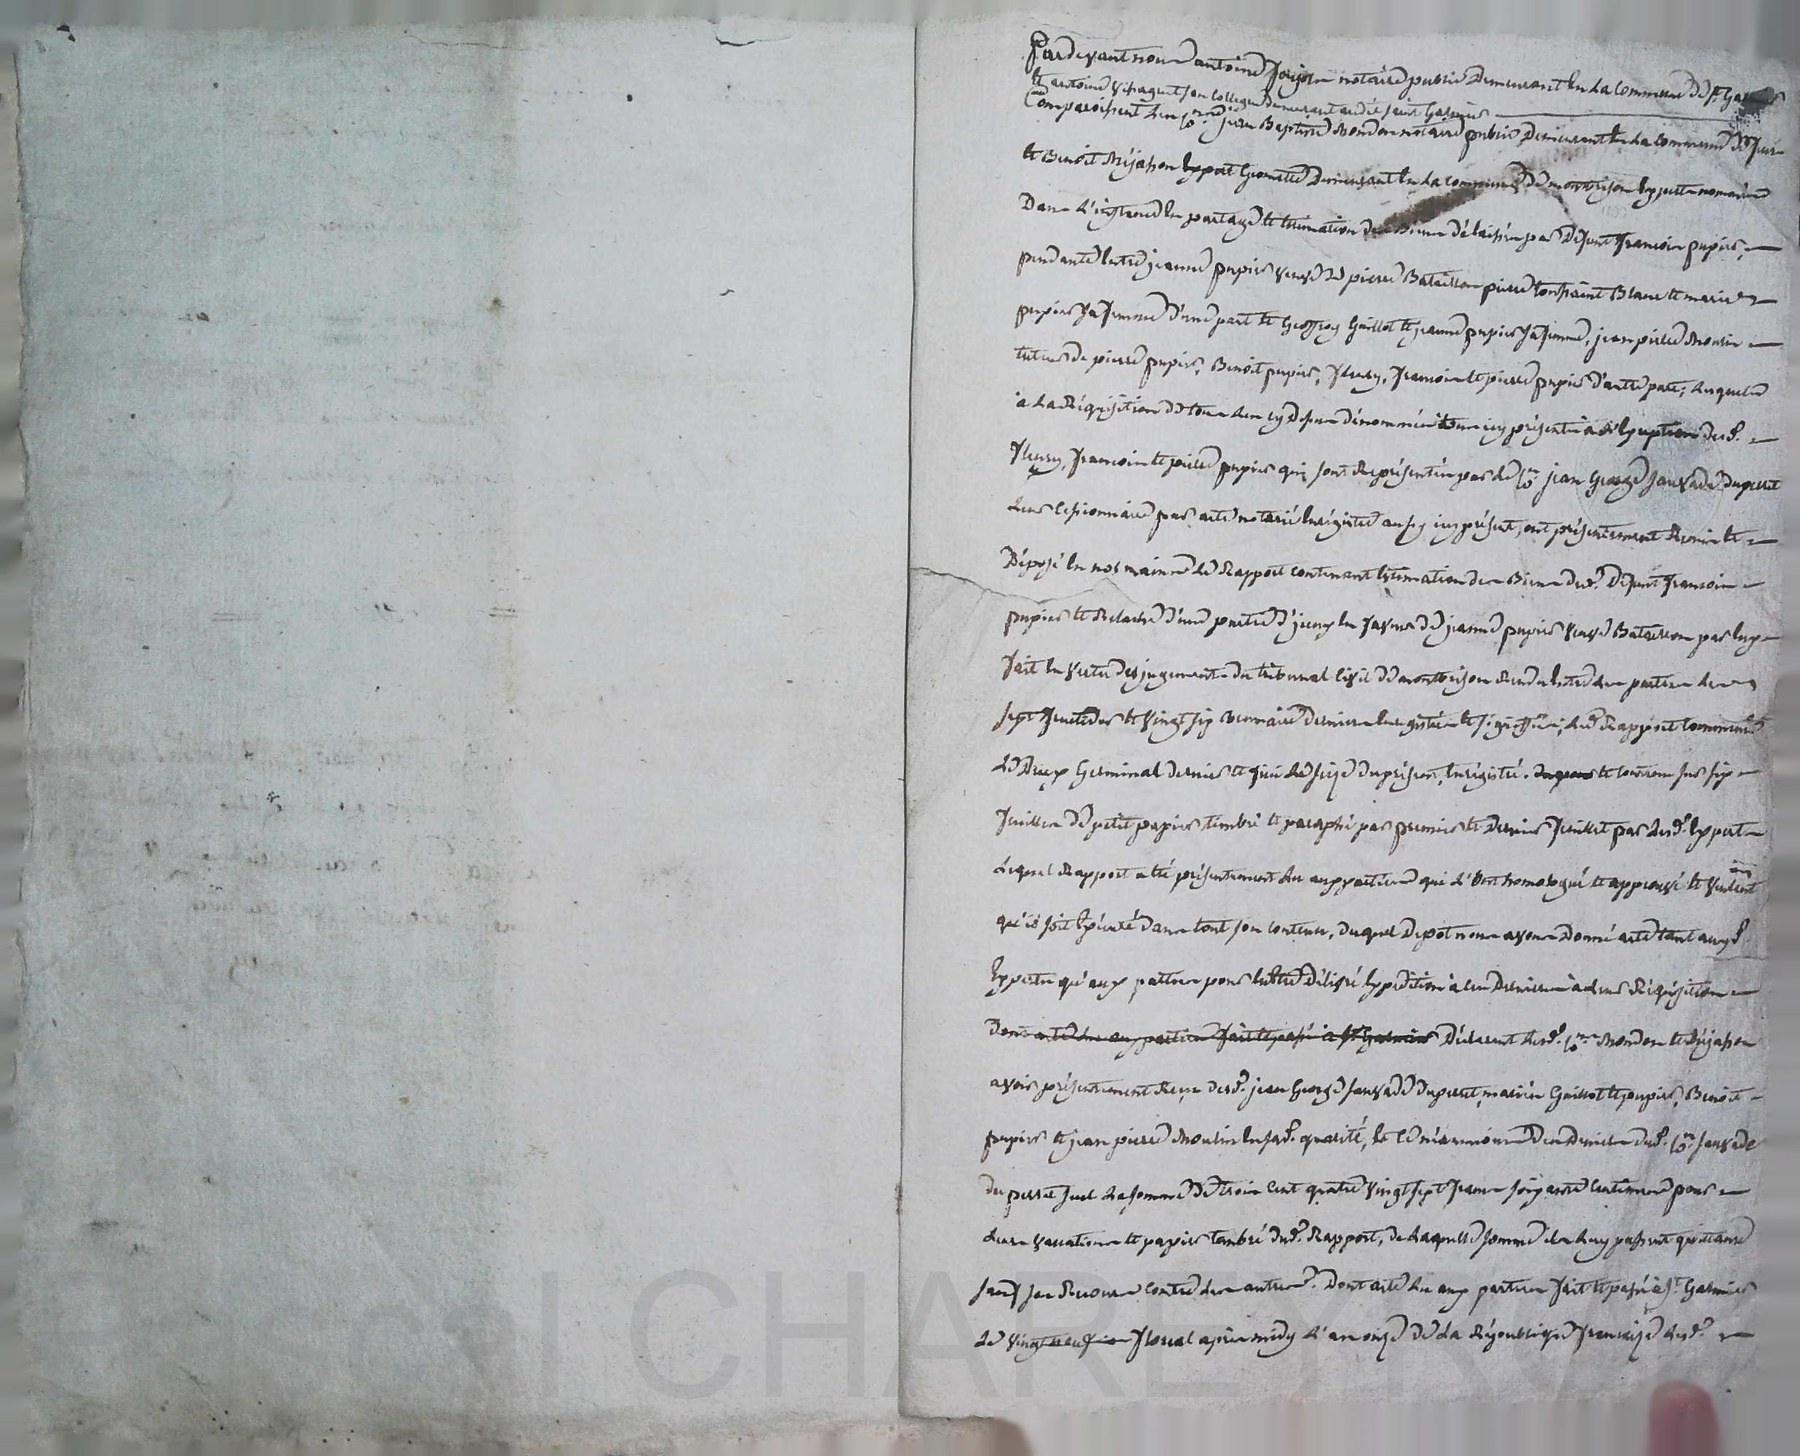 Pardevant nous antoine notaire public Demeurant En La Commune de St. Galmier
Et antoine son Collegue demeurant audit Saint Galmier
Comparoissent Les Cens. jean Baptiste Mondon notaire public Demeurant En La Commune de
Et Benoit Réjasson Expert Geometre Demeurant En La Commune de montbrison Experts nommés
Dans L'instance En partage Et Estimation des Biens délaissés par Défunt francois pupier,
pendante Entre jeanne pupier veuve de pierre Bataillon pierre toussaint Blanc Et marie
pupier sa femme d'une part Et Geoffroy Guillot Et jeanne pupier sa femme, jean pierre Moulin
tuteur de pierre pupier, Benoit pupier, fleury, francois Et pierre pupier d'autre part; Lesquels
à La Réquisition de tous Les cy dessus dénommés tous icy présents à L'Exception desd.
fleury, francois Et pierre pupier qui sont Représentés par Le Cen. jean George Sauvade Duperret
Leur Cessionnaire par acte notarié Enrégistré aussy icy présent, ont présentement Remis Et
Déposé En nos mains Le Rapport contenant Estimation des Biens dud. Défunt francois
pupier Et Relache d'une partie d'iceux En faveur de jeanne pupier veuve Bataillon par Eux
fait En vertu des jugements du tribunal Civil de montbrison Rendu Entre Les parties Les
sept fructidor Et vingt six Brumaire Dernier Enregistrés Et signiffiés; Led. Rapport Commencé
Le Deux Germinal dernier Et fini Le seize du présent, Enrégistré. Et contenu sur six
feuilles de petit papier timbré Et paraphé par premier Et Dernier feuillet par Lesd. Experts
Lequel Rapport a été présentement Lu aux parties qui L'ont homologué Et approuvé Et veulent
qu'il soit Exécuté dans tout son contenu, duquel Depot nous avons Donné acte tant auxd.
Experts qu'aux parties pour Être Délivré Expédition à ces Derniers à Leur Réquisition
Dont acte Lu aux parties fait Et passé à St. Galmier Déclarent Lesd. Cens. Mondon Et Réjasson
avoir présentement Reçu desd. jean George Sauvade Duperret, mariés Guillot Et pupier, Benoit
pupier Et jean pierre Moulin En sad. qualité, Et Ce Des Deniers dud. Cen. Sauvade
du perret seul La somme de trois Cent quatre vingt sept francs soixante Centimes pour
Leurs vacations Et papier timbré dud. Rapport, de Laquelle somme ils Leur passent quittance
sauf Son Recours contre Les autres. Dont acte Lu aux parties fait Et passé à St. Galmier
Le vingt neuf floreal après midy L'an onze de La République française Lesd.